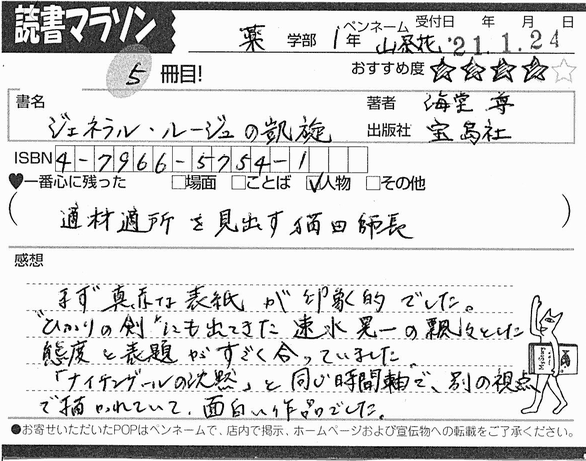 読書マラソン
薬 学部 1年 ペンネーム 山茶花 受付日 年 月 日 '21.1.24
5 冊目! おすすめ度 ★★★★☆
書名 ジェネラル・ルージュの凱旋
著者 海堂 尊
出版社 宝島社
ISBN 4-7966-5754-1
♥一番心に残った □場面 □ことば ☑人物 □その他
(適材適所を見出す猫田師長)
感想
まず真赤な表紙が印象的でした。
"ひかりの剣"にも出てきた速水晃一の飄々とした
態度と表題がすごく合っていました。
「ナイチンゲールの沈黙」と同じ時間軸で、別の視点
で描かれていて、面白い作品でした。
●お寄せいただいたPOPはペンネームで、店内で掲示、ホームページおよび宣伝物への転載をご了承ください。